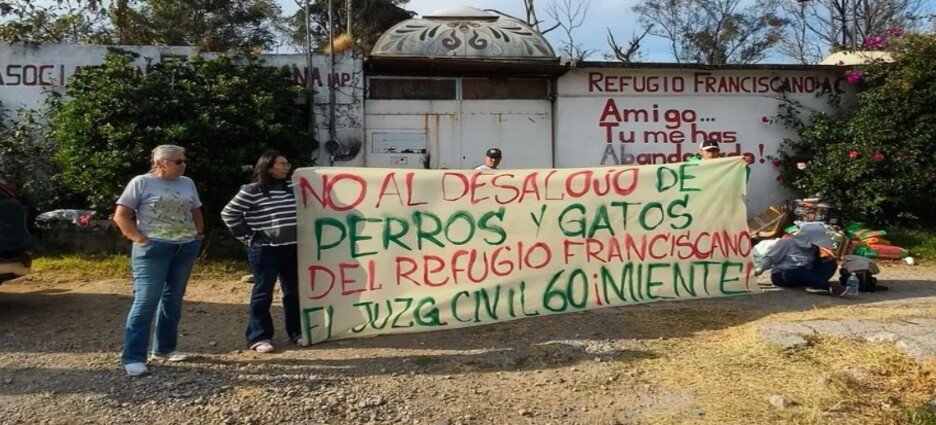 ASOCI NA IAP
REFUGIO FRANCISCANO A.C.
Amigo...
Tu me has
Abandonado!
NO AL DESALOJO DE
PERROS Y GATOS
DEL REFUGIO FRANCISCANO
El JUZG. CIVIL 60 ¡MIENTE!